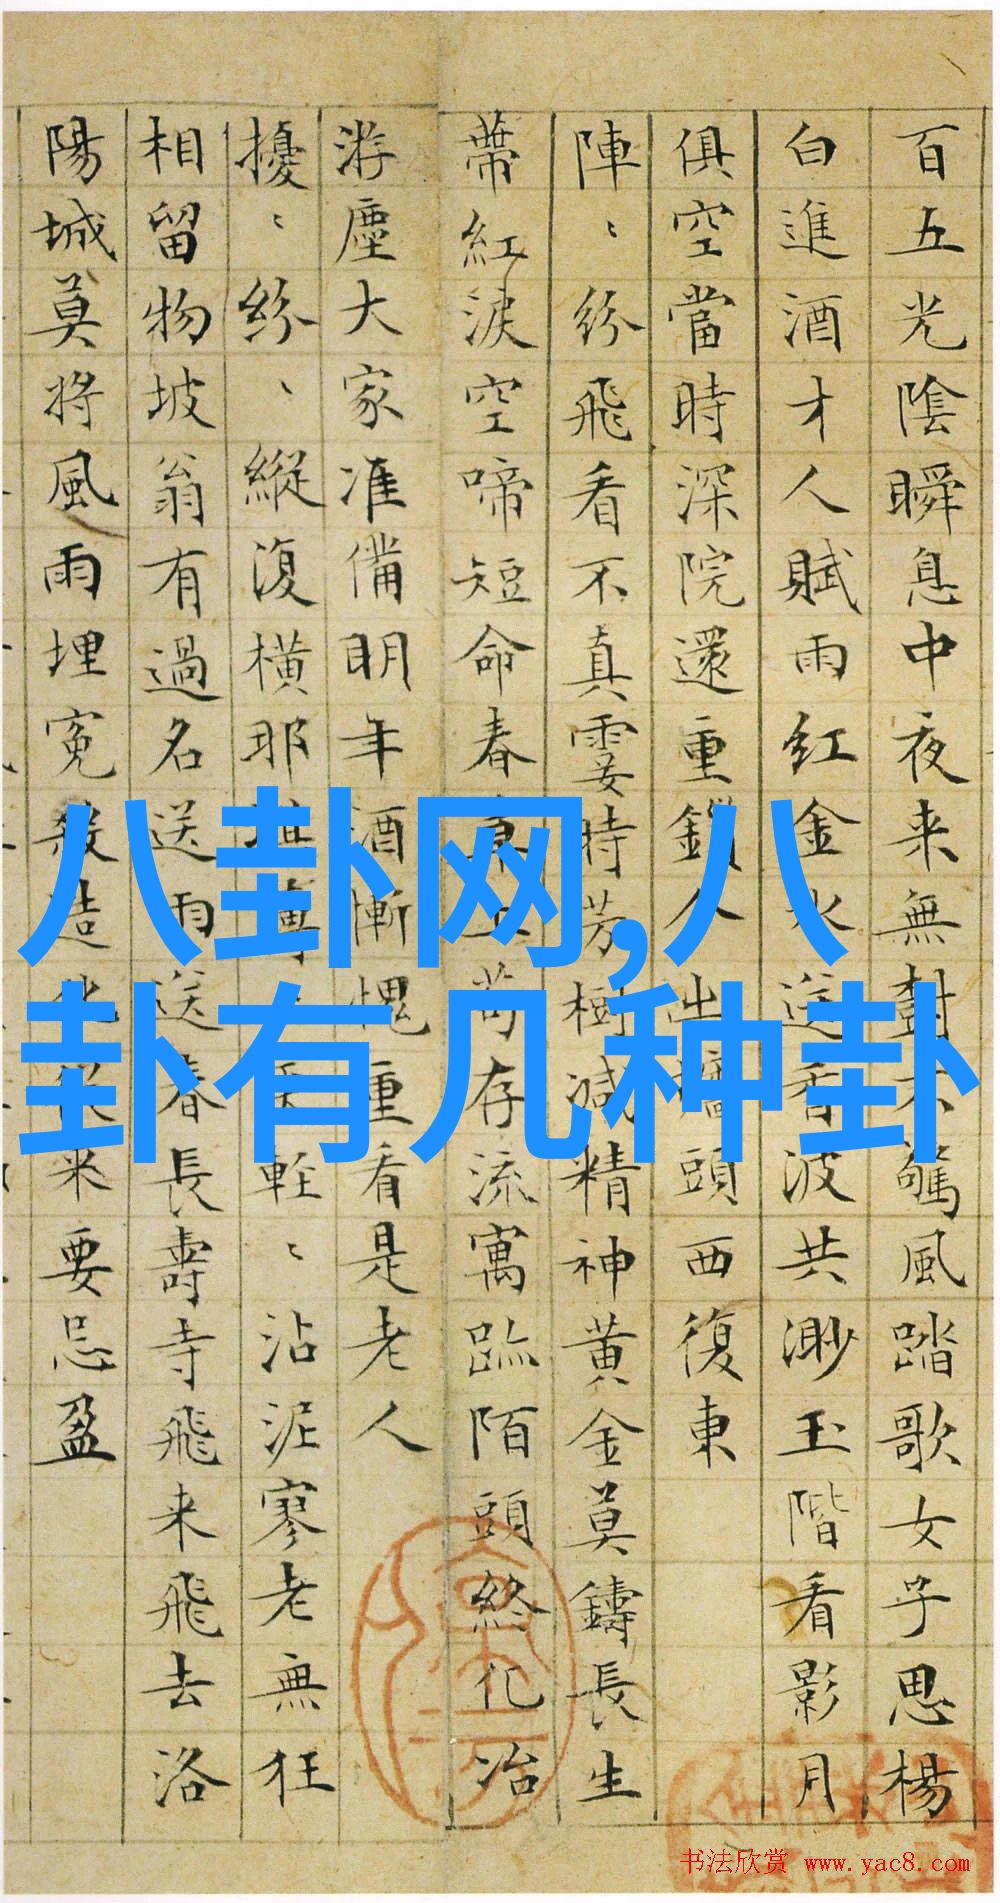 百五光陰瞬息中夜来無樹不驚風踏歌女子思楊
白進酒才人賦雨红金水送香波共渺玉階看影月
俱空當時深院還重鎖今出墻頭西復東
陣〻紛飛看不真霎時芳樹減精神黄金莫鑄長生
蒂紅淚空啼短命春草上苟存流寓跡陌頭終化冶
游塵大家准備明年酒慚愧重看是老人
擾〻紛〻縱復横那堪薄〻更輕〻沾泥寥老無狂
相留物坡翁有過名送雨送春長壽寺飛来飛去洛
陽城莫将風雨埋寃殺造化從来要忌盈
八卦网,八
卦有几种卦
书法欣赏 www.yac8.com